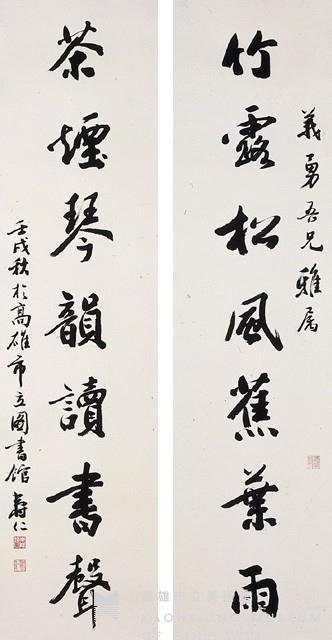 義勇吾兄雅屬
竹露松風蕉葉雨
茶煙琴韻讀書聲
壬戌秋於高雄市立圖書館 壽仁